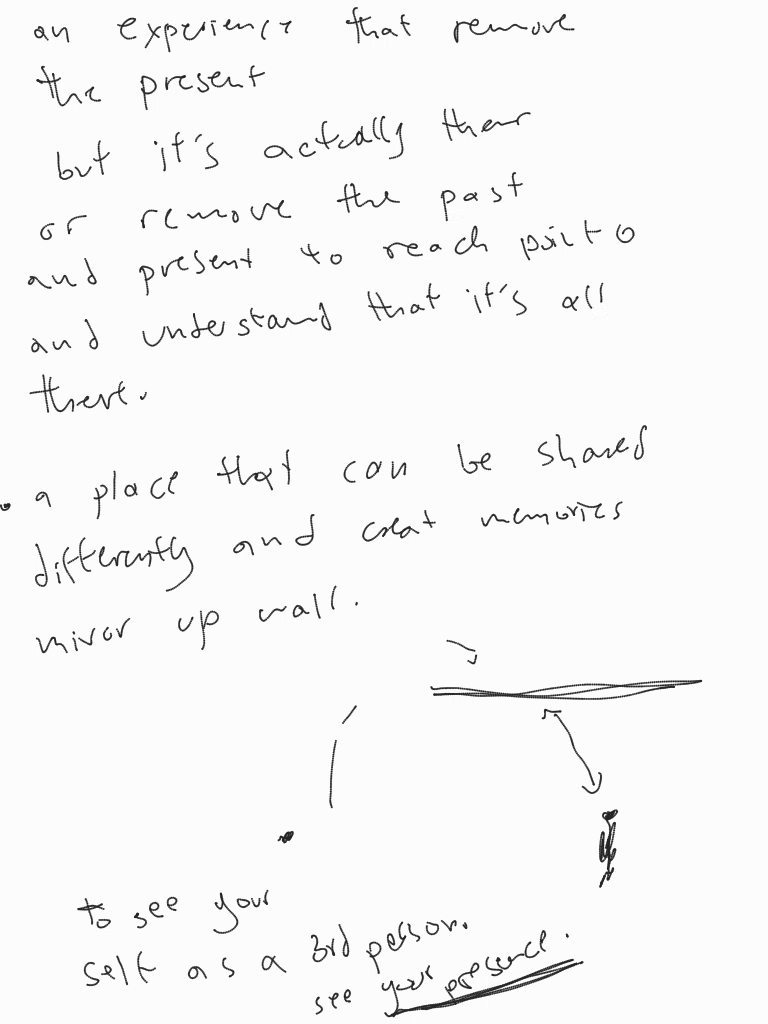 an experience that remove
the present
but it's actually ther
or remove the past
and present to reach point 0
and understand that it's all
there.
• a place that can be shared
differently and creat memories
mirror up wall.
to see your
self as a 3rd person.
see your presence.